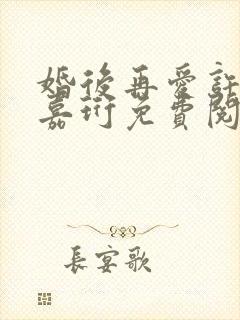 婚後再愛許
嘉珩免費閱
長宴歌